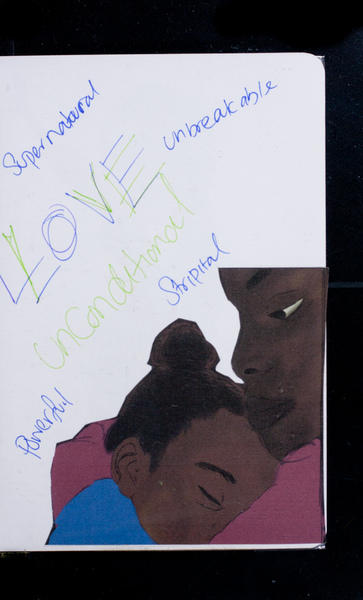 Supernatural
unbreakable
LOVE
unconditional
Stripital
Powerful